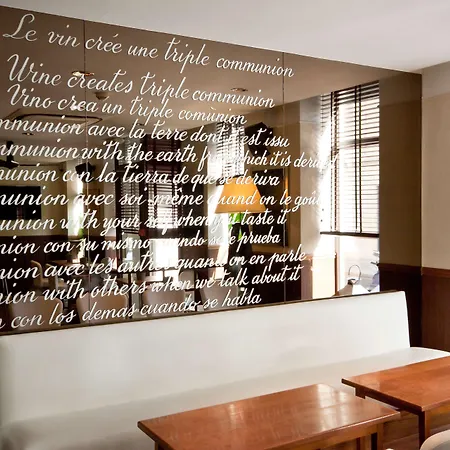 Le vin crée une triple communion
Wine creates triple communion
Vino crea un triple comunion
mmunion avec la terre dont il est issu
mmunion with the earth from which it is derived
munion con la tierra de que se deriva
munion avec soi-même quand on le goûte
munion with your self when you taste it
nion con su mismo quando we le prueba
nion avec les autres quand on en parle
nion with others when we talk about it
n con los demas cuando se habla